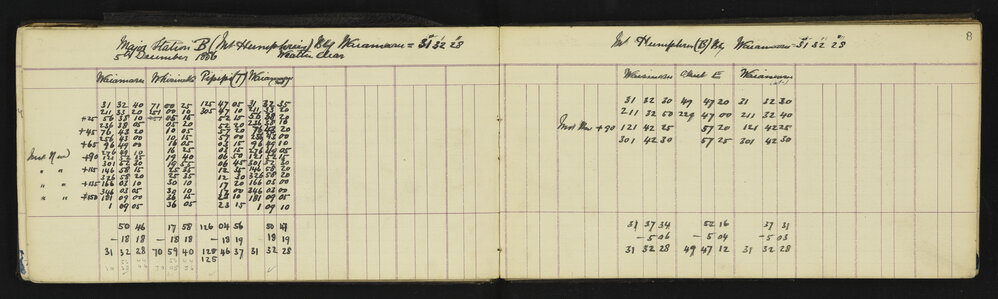 Major Station B (Mt Humphries) Brg Waiamaru = 31° 32' 28"
5th December 1886 Weather Clear
Waiamaru
31 32 40 71 00 25 125 47 05 31 32 35
211 33 20 251 00 10 305 47 10 211 33 20
+25 56 38 10 05 16 52 15 56 38 20
236 38 05 05 20 52 20 236 38 10
+45 76 43 20 10 05 57 20 76 43 20
256 43 00 10 15 57 00 256 43 00
+65 96 49 00 16 05 03 15 96 49 10
+90 121 52 15 19 40 06 50 121 52 15
301 52 30 19 55 06 45 301 52 30
+115 146 58 15 25 35 12 35 146 58 20
326 58 20 25 35 12 30 326 58 20
+135 166 03 10 30 10 17 20 166 03 00
346 03 05 30 10 17 00 346 03 00
+150 181 09 00 36 15 23 10 181 09 05
1 09 05 36 05 23 15 1 09 10
50 46 17 58 126 04 56 50 47
- 18 18 - 18 18 - 18 19 18 19
31 32 28 70 59 40 125 46 37 31 32 28
125
8
Mt Humphries (B) Brg Waiamaru = 31° 32' 28"
Waiamaru Waiamaru
31 32 30 49 47 20 31 32 30
211 32 50 229 47 00 211 32 40
+90 121 42 25 57 20 121 42 25
301 42 30 57 25 301 42 30
31 37 34 52 16 37 31
- 5 06 - 5 04 - 5 03
31 32 28 49 47 12 31 32 28